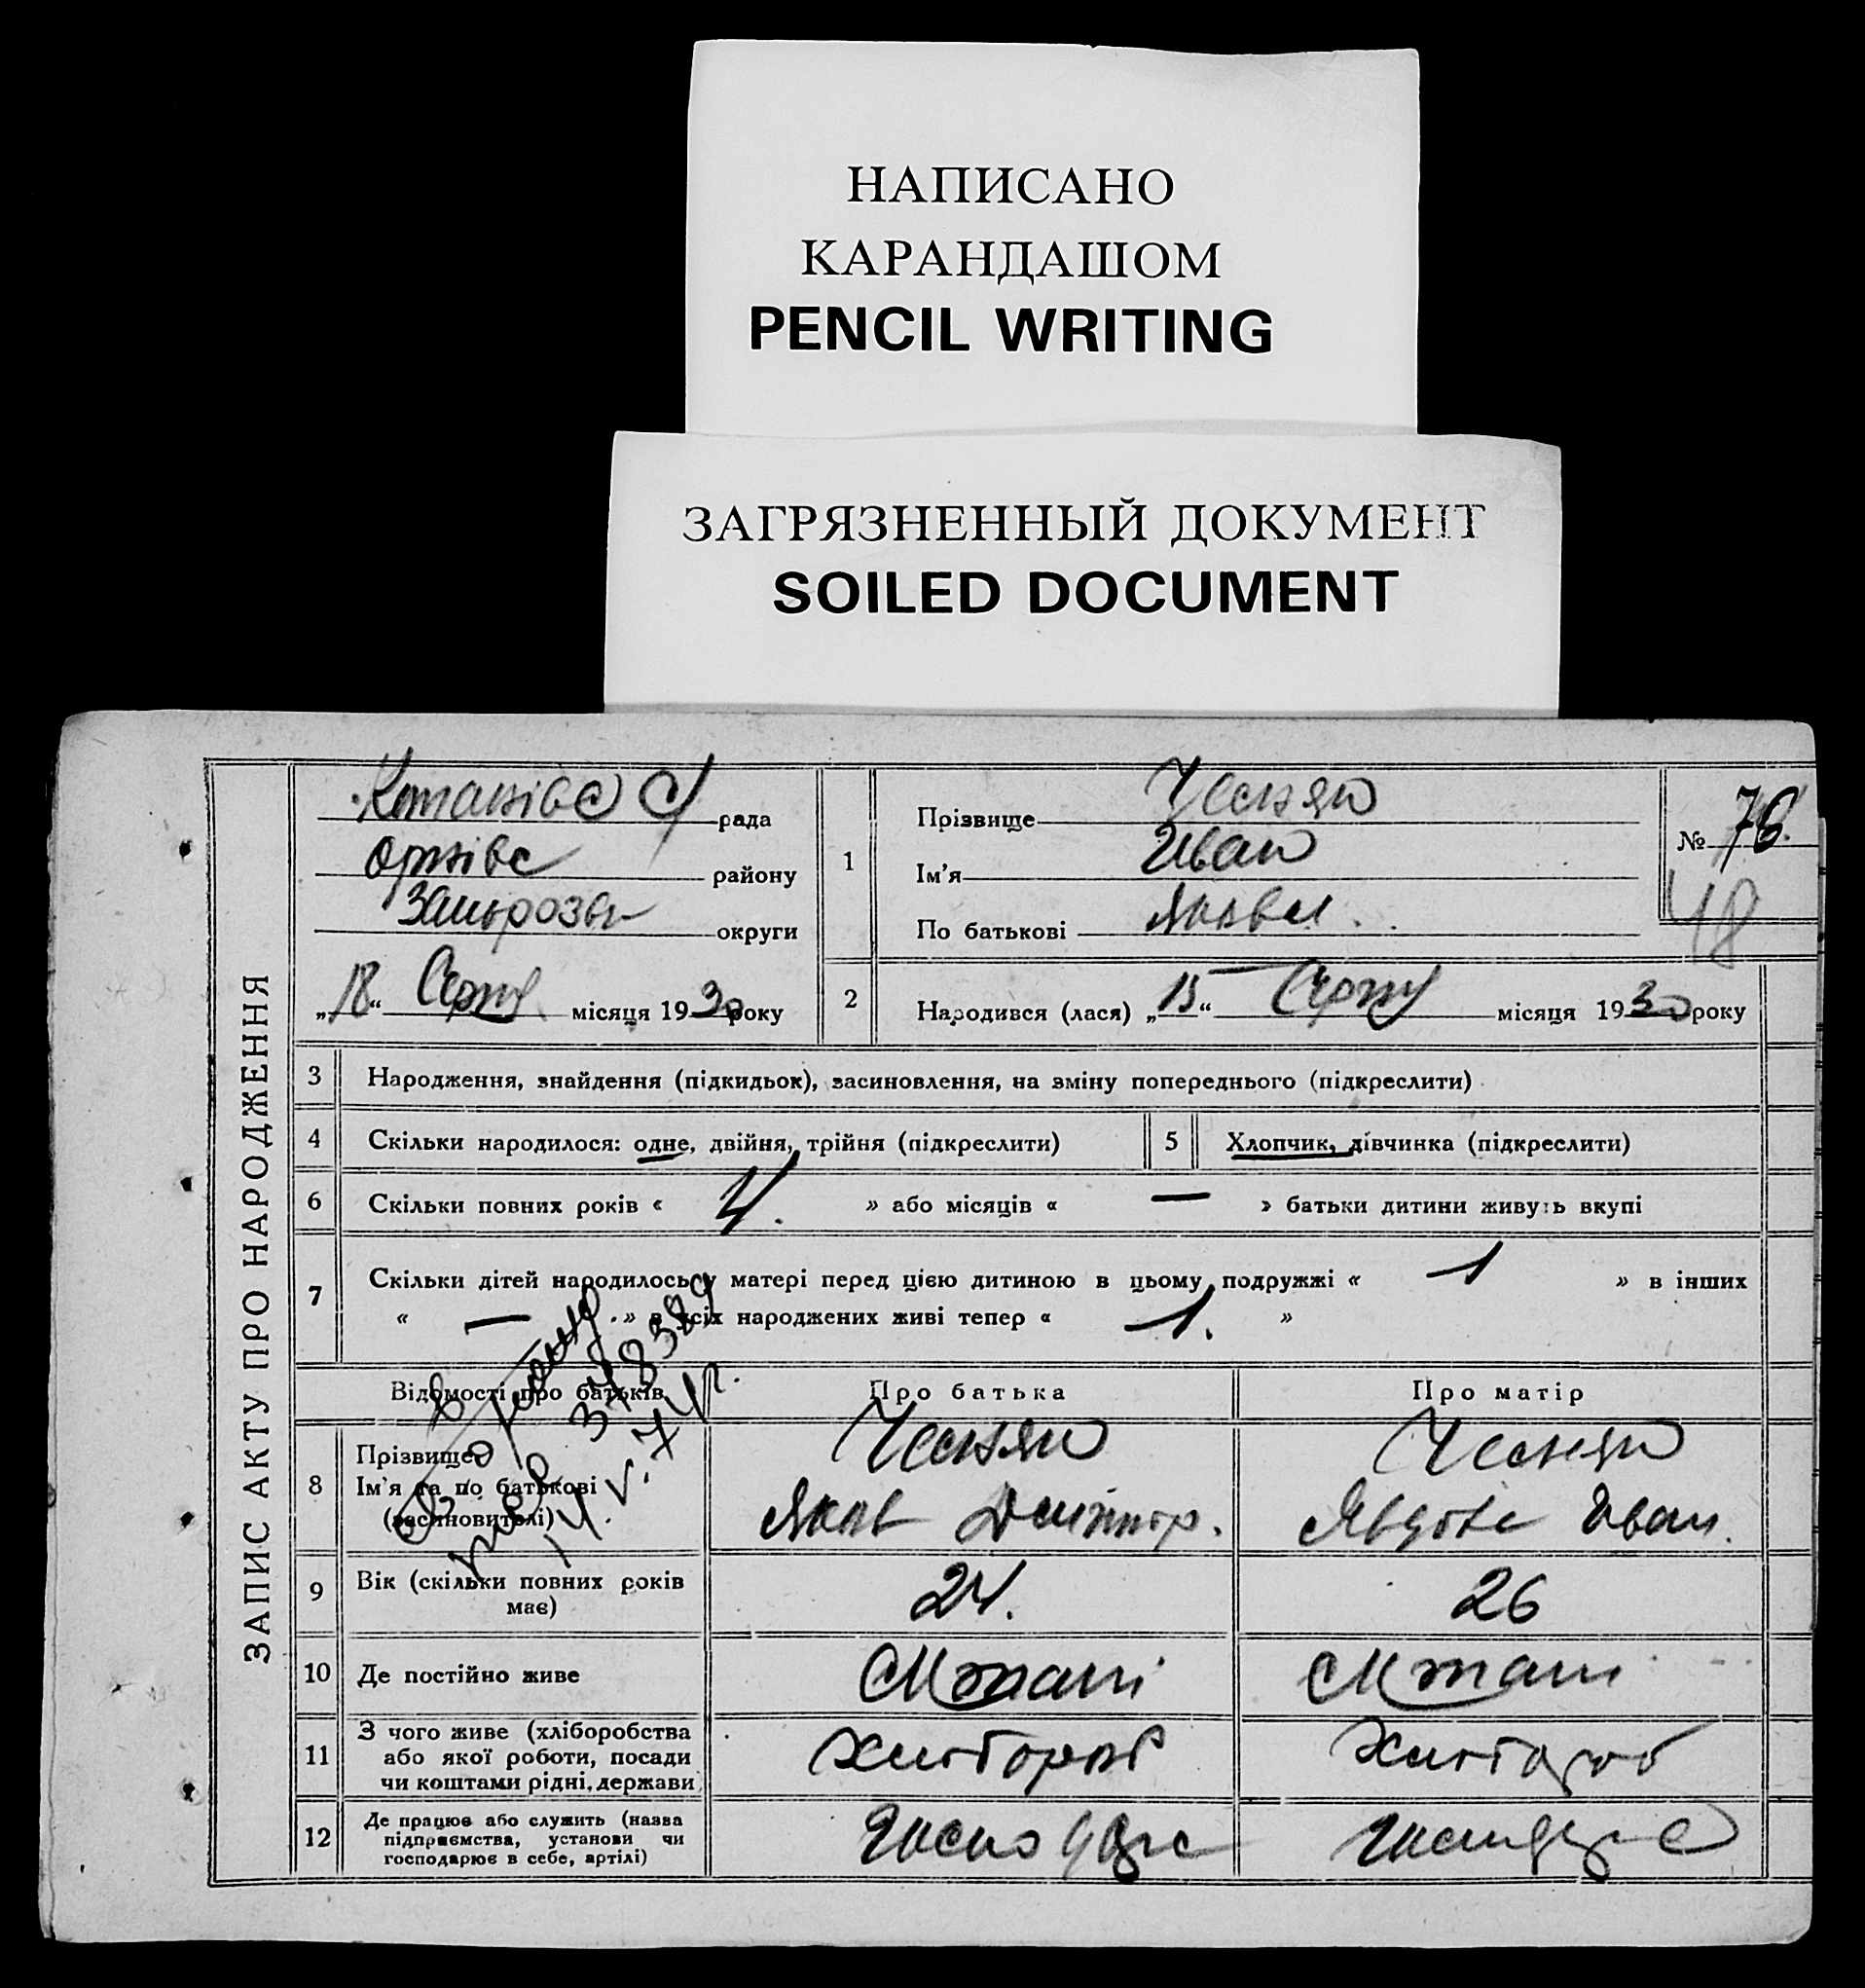 НАПИСАНО
КАРАНДАШОМ
PENCIL WRITING
ЗАГРЯЗНЕННЫЙ ДОКУМЕНТ
SOILED DOCUMENT
ЗАПИС АКТУ ПРО НАРОДЖЕННЯ
рада
району
округи
„18“ Серпн місяця 1930 року
1
Прізвище
Ім'я Иван
По батькові Якова
№ 76.
48
2 Народився (лася) „15“ Серпн місяця 1930 року
3 Народження, знайдення (підкидьок), засиновлення, на зміну попереднього (підкреслити)
4 Скільки народилося: одне, двійня, трійня (підкреслити)
5 Хлопчик, дівчинка (підкреслити)
6 Скільки повних років « 4. » або місяців « — » батьки дитини живуть вкупі
7 Скільки дітей народилось у матері перед цією дитиною в цьому подружжі « 1 » в інших
« — » в усіх народжених живі тепер « 1. »
Відомості про батьків Про батька Про матір
8 Прізвище
Ім'я та по батькові
(засиновителі)
Яков Дмитр. Явдоха Иван.
378389
14.V.74г.
9 Вік (скільки повних років має) 24. 26
10 Де постійно живе
11 З чого живе (хліборобства
або якої роботи, посади
чи коштами рідні, держави)
Хлібороб Хлібороб
12 Де працює або служить (назва
підприємства, установи чи
господарює в себе, артілі)